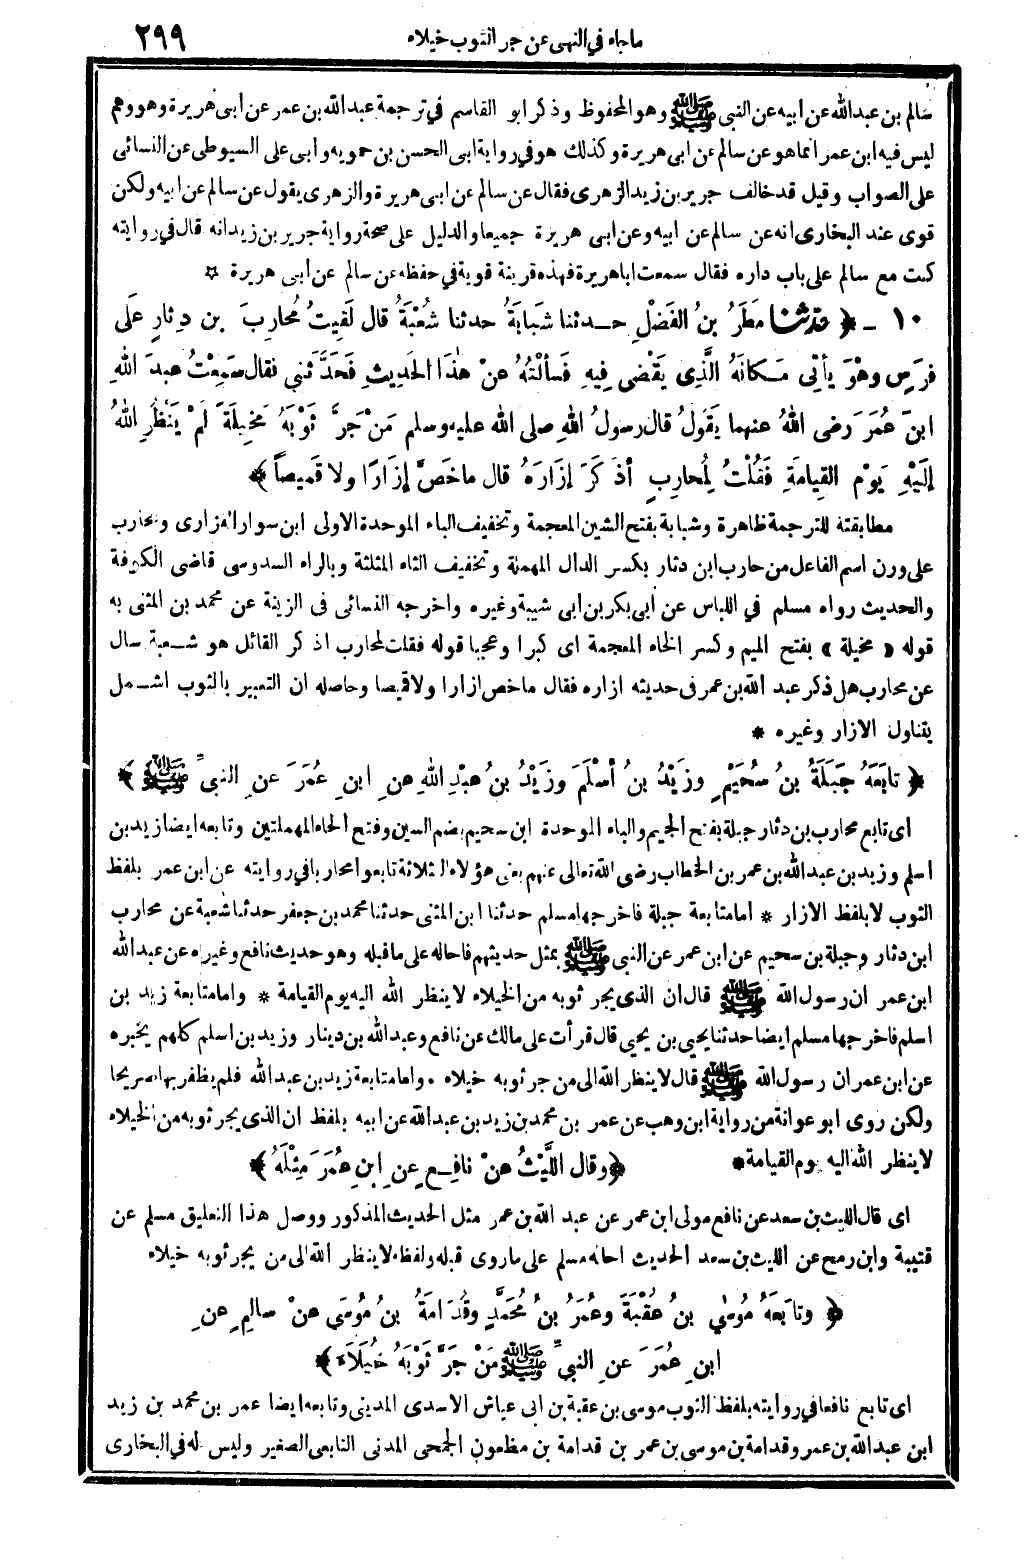 ماجاء في النهى عن جر الثوب خيلاء ٢٩٩
سالم بن عبدالله عن ابيه عن النبي ﷺ وهو المحفوظ وذكر ابو القاسم في ترجمة عبدالله بن عمر عن ابى هريرة وهو وهم
ليس فيه ابن عمر انما هو عن سالم عن ابى هريرة وكذلك هو في رواية ابى الحسن بن حمويه وابى على السيوطى عن النسائى
على الصواب وقيل قد خالف جرير بن زيد الزهرى فقال عن سالم عن ابى هريرة والزهرى يقول عن سالم عن ابيه ولكن
قوى عند البخارى انه عن سالم عن ابيه وعن ابى هريرة جميعا والدليل على صحة رواية جرير بن زيد انه قال في روايته
كنت مع سالم على باب داره فقال سمعت ابا هريرة فهذه قرينة قوية في حفظه عن سالم عن أبى هريرة ☆
١٠ - ﴿ حدثنا مَطَرُ بنُ الفَضْلِ حــدثنا شَبَابَةُ حدثنا شُعْبَةُ قال لَقِيتُ مُحارِبَ بن دِثارٍ عَلَى
فرَسٍ وهْوَ يأتِى مَـكانَهُ الَّذِى يَقْضِى فِيهِ فَسألْتُهُ عنْ هٰذَا الحَدِيثِ فَحَدَّثَنِى فقال سَمِعْتُ عبدَ اللهِ
ابنَ عُمَرَ رضى اللهُ عنهما يَقُولُ قال رسولُ اللهِ صلى الله عليه وسلم مَنْ جَرَّ ثَوْبَهُ مَخِيلَةً لَمْ يَنْظُرِ اللهُ
إلَيْهِ يَوْمَ القِيامَةِ فَقُلْتُ لِمُحارِبٍ أذَ كَرَ إزَارَهُ قال ماخَصَّ إزَارًا ولا قَمِيصاً ﴾
مطابقته للترجمة ظاهرة وشبابة بفتح الشين المعجمة وتخفيف الباء الموحدة الاولى ابن سوار الفزارى ومحارب
على وزن اسم الفاعل من حارب ابن دثار بكسر الدال المهملة وتخفيف الثاء المثلثة وبالراء السدوسى قاضى الكوفة
والحديث رواه مسلم في اللباس عن أبى بكر بن ابى شيبة وغيره واخرجه النسائى فى الزينة عن محمد بن المثنى به
قوله « مخيلة » بفتح الميم وكسر الخاء المعجمة اى كبرا وعجبا قوله فقلت لمحارب اذ كر القائل هو شــعبة سال
عن محارب هل ذكر عبد الله بن عمر فى حديثه ازاره فقال ماخص ازارا ولا قميصا وحاصله ان التعبير بالثوب اشــمل
يتناول الازار وغيره *
﴿ تابَعَهُ جَبَلَةُ بنُ سُحَيْمٍ وزَيْدُ بنُ أسْلَمَ وزَيْدُ بنُ عبْدِ اللهِ عنِ ابنِ عُمَرَ عنِ النبيِّ ﷺ ﴾
اى تابع محارب بن دثار جبلة بفتح الجيم والباء الموحدة ابن سحيم بضم السين وفتح الحاء المهملتين وتابعه ايضا زيد بن
اسلم وزيد بن عبدالله بن عمر بن الخطاب رضى الله تعالى عنهم يعنى هؤلاء الثلاثة تابعوا محاربا في روايته عن ابن عمر بلفظ
الثوب لا بلفظ الازار * اما متابعة جبلة فاخرجها مسلم حدثنا ابن المثنى حدثنا محمد بن جعفر حدثنا شعبة عن محارب
ابن دثار وجبلة بن سحيم عن ابن عمر عن النبى ﷺ بمثل حديثهم فاحاله على ماقبله وهو حديث نافع وغيره عن عبدالله
ابن عمر ان رسول الله ﷺ قال ان الذى يجر ثوبه من الخيلاء لا ينظر الله اليه يوم القيامة * واما متابعة زيد بن
اسلم فاخرجها مسلم ايضا حدثنا يحيى بن يحيى قال قرأت على مالك عن نافع وعبدالله بن دينار وزيد بن اسلم كلهم يخبره
عن ابن عمر ان رسول الله ﷺ قال لا ينظر الله الى من جر ثوبه خيلاء . واما متابعة زيد بن عبدالله فلم يظفر بها صريحا
ولكن روى ابو عوانة من رواية ابن وهب عن عمر بن محمد بن زيد بن عبدالله عن ابيه بلفظ ان الذى يجر ثوبه من الخيلاء
لا ينظر الله اليه يوم القيامة * ﴿ وقال اللَّيْثُ عنْ نافِـعٍ عنِ ابنِ عُمَرَ مِثْلَهُ ﴾
اى قال الليث بن سعد عن نافع مولى ابن عمر عن عبد الله بن عمر مثل الحديث المذكور ووصل هذا التعليق مسلم عن
قتيبة وابن رمح عن الليث بن سعد الحديث احاله مسلم على ماروى قبله ولفظه لا ينظر الله الى من يجر ثوبه خيلاء
﴿ وتابَعَهُ مُوسٰى بنُ عُقْبَةَ وعُمَرُ بنُ مُحَمَّدٍ وقُدَامَةُ بنُ مُوسَى عنْ سالِمٍ عنِ
ابنِ عُمَرَ عنِ النبيِّ ﷺ مَنْ جَرَّ ثَوْبَهُ خُيَلَاءَ ﴾
اى تابع نافعا في روايته بلفظ الثوب موسى بن عقبة بن ابى عياش الاسدى المدينى وتابعه ايضا عمر بن محمد بن زيد
ابن عبدالله بن عمر وقدامة بن موسى بن عمر بن قدامة بن مظعون الجمحى المدنى التابعى الصغير وليس له في البخارى